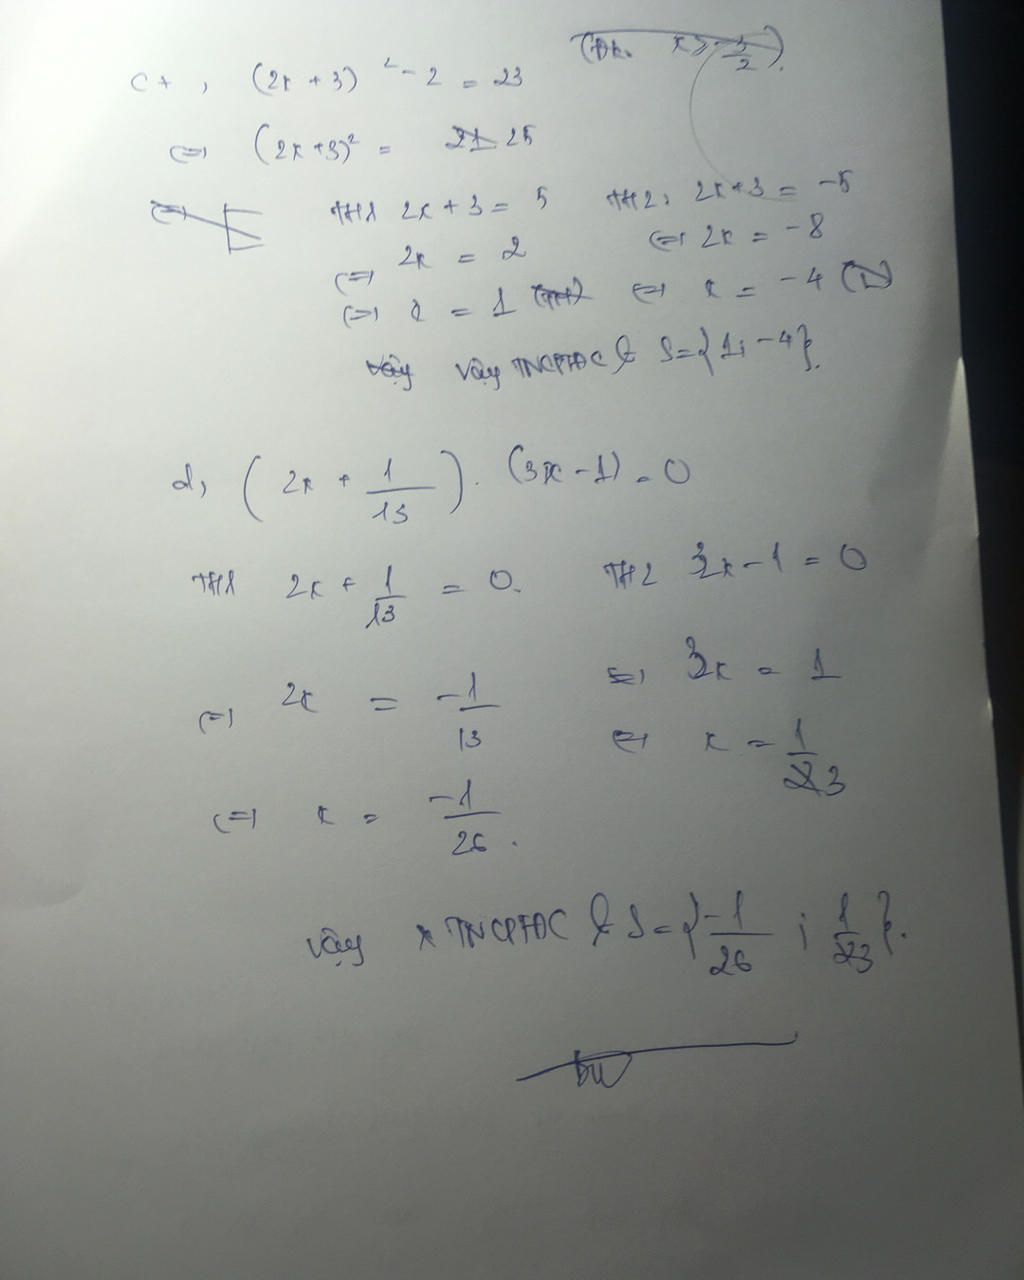 (ĐK: x > -3/2).
c, (2x + 3)² - 2 = 23
⇔ (2x+3)² = 21 25
⇔
TH1 2x + 3 = 5 TH2: 2x+3 = -5
⇔ 2x = 2 ⇔ 2x = -8
⇔ x = 1 (TM) ⇔ x = -4
vậy vậy TNCPTĐC là S={1; -4}.
d, (2x + 1/13) . (3x - 1) = 0
TH1 2x + 1/13 = 0. TH2 3x - 1 = 0
⇔ 2x = -1/13 ⇔ 3x = 1
⇔ x = -1/26. ⇔ x = 1/3
vậy x TNCPTĐC là S={-1/26 ; 1/3}.